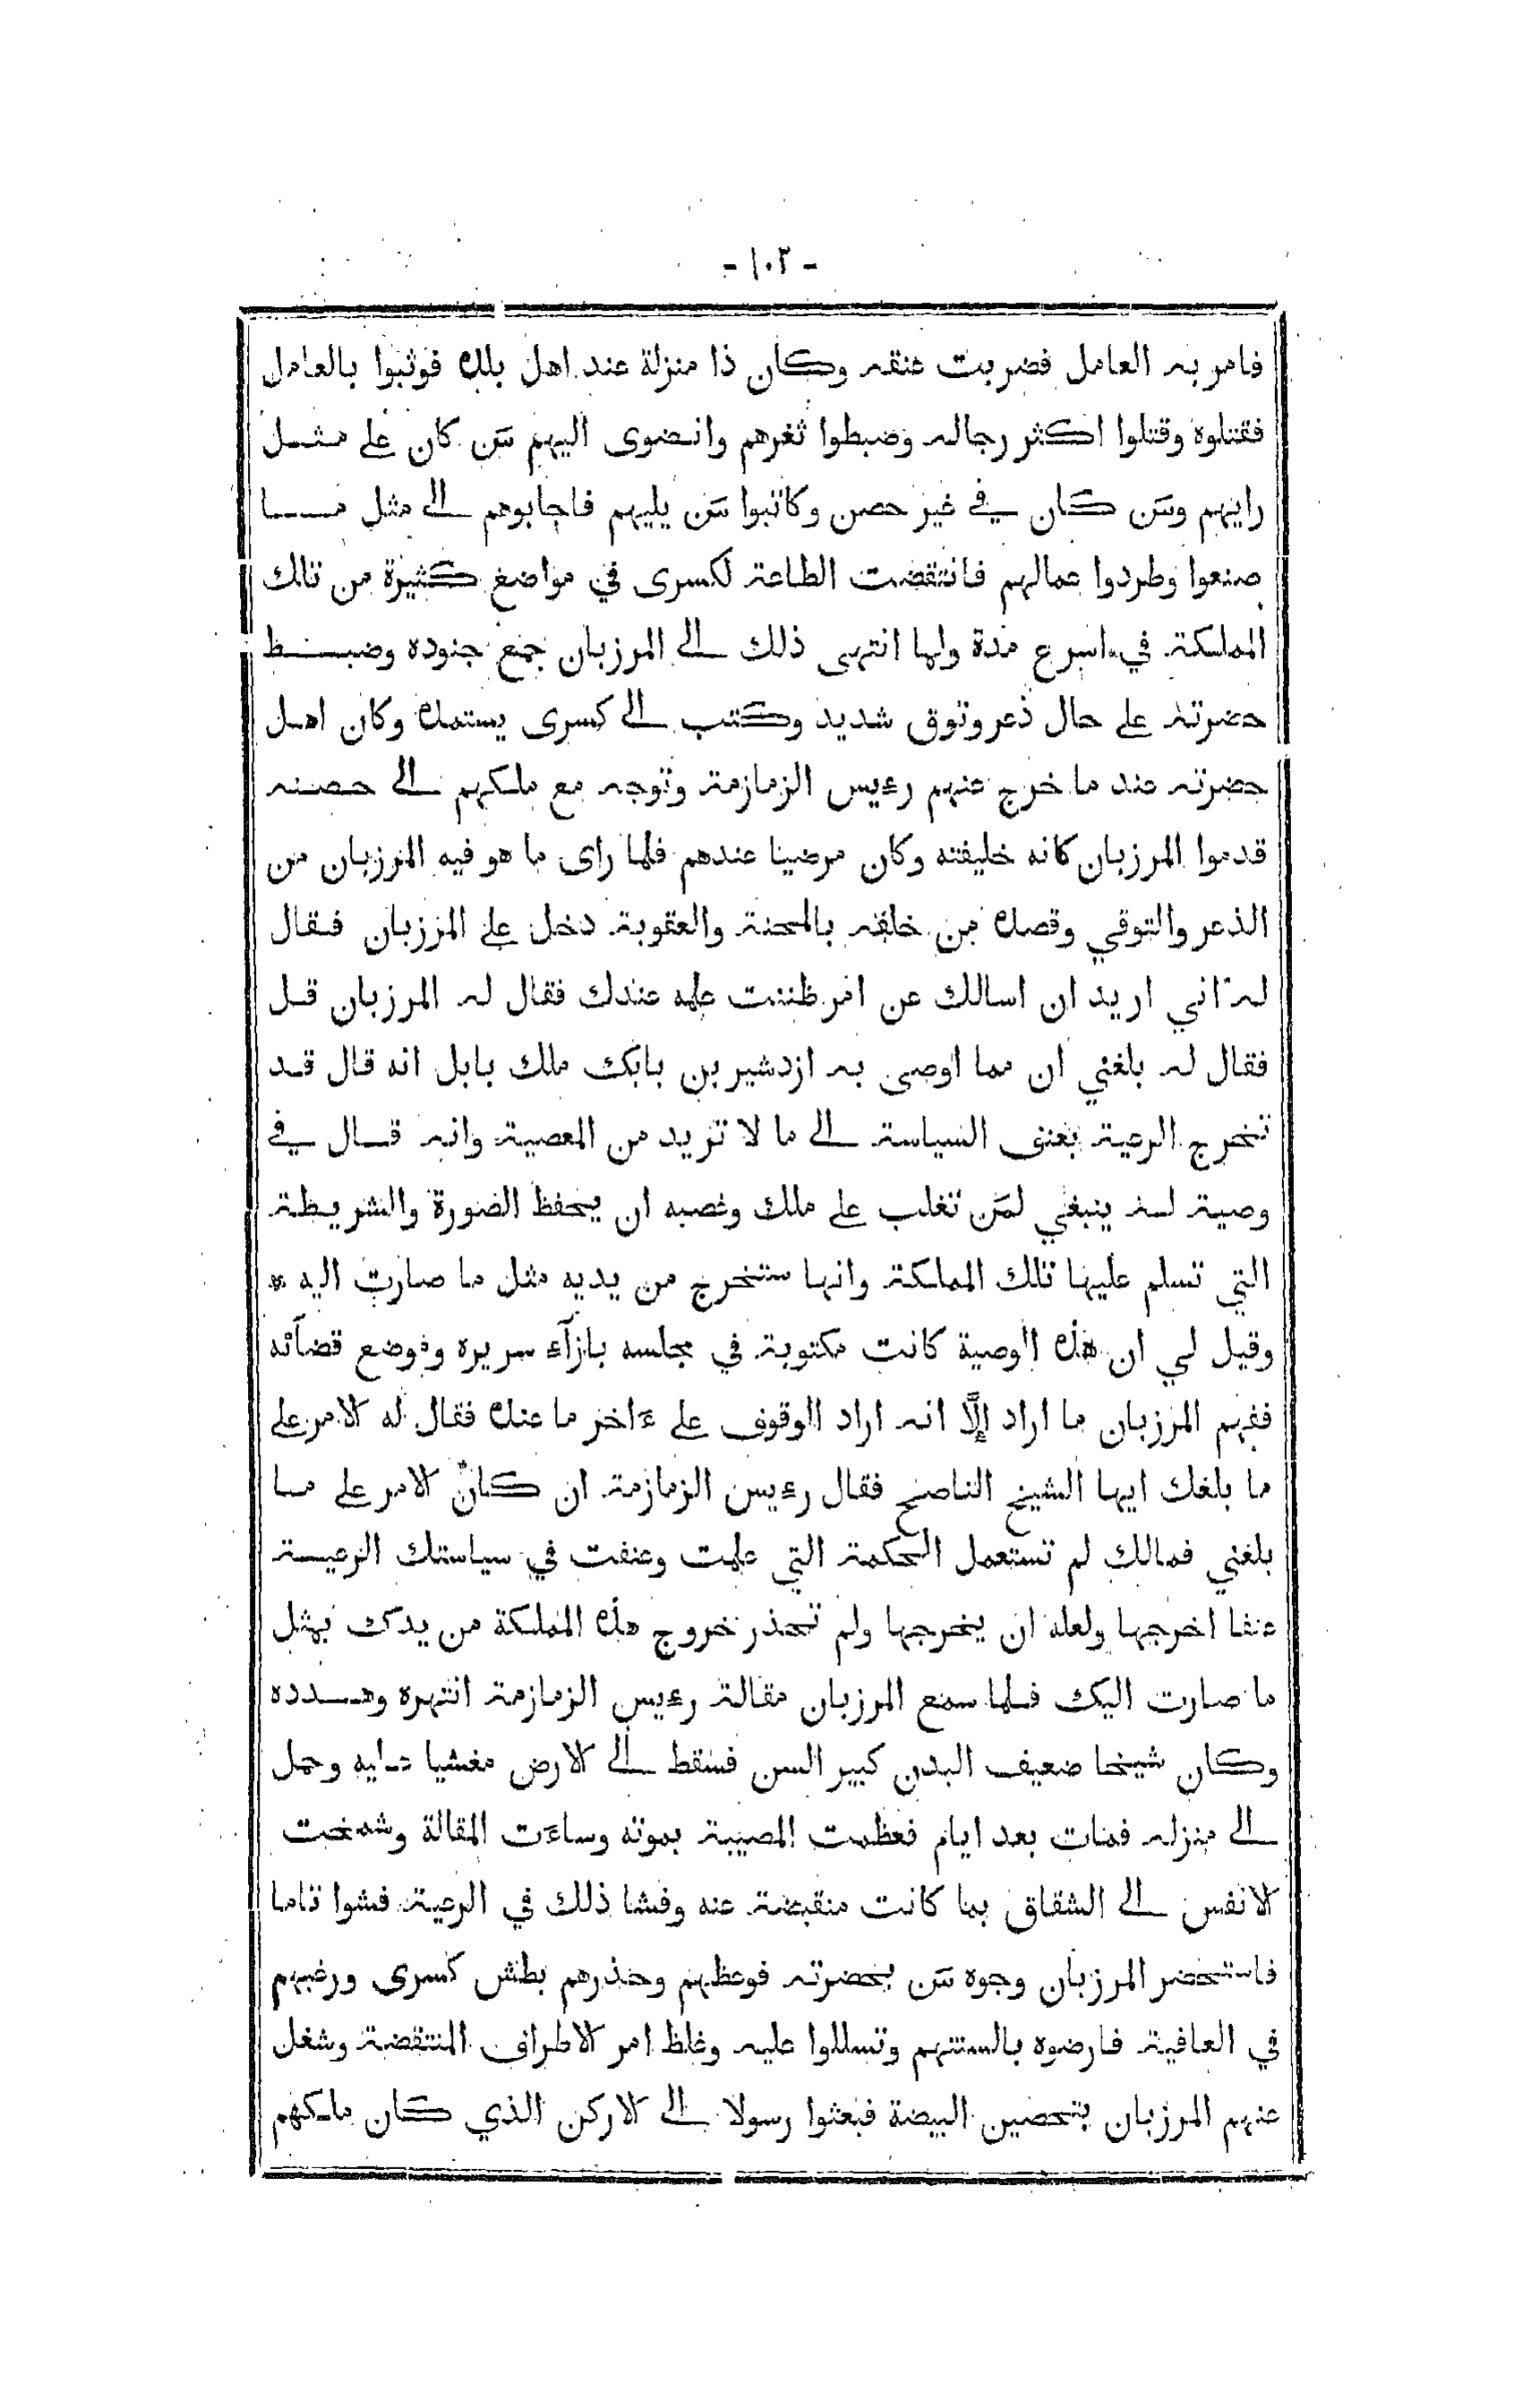 - ١٠٣ -
فامر به العامل فضربت عنقه وكان ذا منزلة عند اهل بلده فوثبوا بالعامل
فقتلوه وقتلوا اكثر رجاله وضبطوا ثغرهم وانضوى اليهم مَن كان على مثل
رايهم ومَن كان في غير حصن وكاتبوا مَن يليهم فاجابوهم الى مثل ما
صنعوا وطردوا عمالهم فانتقضت الطاعة لكسرى في مواضع كثيرة من تلك
المملكة في اسرع مدة ولما انتهى ذلك الى المرزبان جمع جنوده وضبط
حضرته على حال ذعر وتوق شديد وكتب الى كسرى يستمده وكان اهل
حضرته عند ما خرج عنهم رءيس الزمازمة وتوجه مع ملكهم الى حصنه
قدموا المرزبان كانه خليفته وكان مرضيا عندهم فلما راى ما هو فيه المرزبان من
الذعر والتوقي وقصده من خلفه بالمحنة والعقوبة دخل على المرزبان فقال
له اني اريد ان اسالك عن امر ظننت علمه عندك فقال له المرزبان قل
فقال له بلغني ان مما اوصى به ازدشير بن بابك ملك بابل انه قال قد
تخرج الرعية بعنف السياسة الى ما لا تريد من المعصية وانه قال في
وصية له ينبغي لمَن تغلب على ملك وغصبه ان يحفظ الصورة والشريطة
التي تسلم عليها تلك المملكة وانها ستخرج من يديه مثل ما صارت اليه *
وقيل لي ان هذه الوصية كانت مكتوبة في مجلسه بازآء سريره وموضع قضآئه
ففهم المرزبان ما اراد إلَّا انه اراد الوقوف على ءاخر ما عنده فقال له الامر على
ما بلغك ايها الشيخ الناصح فقال رءيس الزمازمة ان كان الامر على ما
بلغني فمالك لم تستعمل الحكمة التي علمت وعنفت في سياستك الرعية
عنفا اخرجها ولعله ان يخرجها ولم تحذر خروج هذه المملكة من يدك بمثل
ما صارت اليك فلما سمع المرزبان مقالة رءيس الزمازمة انتهره وهدده
وكان شيخا ضعيف البدن كبير السن فسقط الى الارض مغشيا عليه وحمل
الى منزله فمات بعد ايام فعظمت المصيبة بموته وساءت المقالة وشمخت
الانفس الى الشقاق بما كانت منقبضة عنه وفشا ذلك في الرعية فشوا تاما
فاستحضر المرزبان وجوه مَن بحضرته فوعظهم وحذرهم بطش كسرى ورغبهم
في العافية فارضوه بالسنتهم وتسللوا عليه وغلظ امر الاطراف المنتقضة وشغل
عنهم المرزبان بتحصين البيضة فبعثوا رسولا الى الاركن الذي كان ملكهم